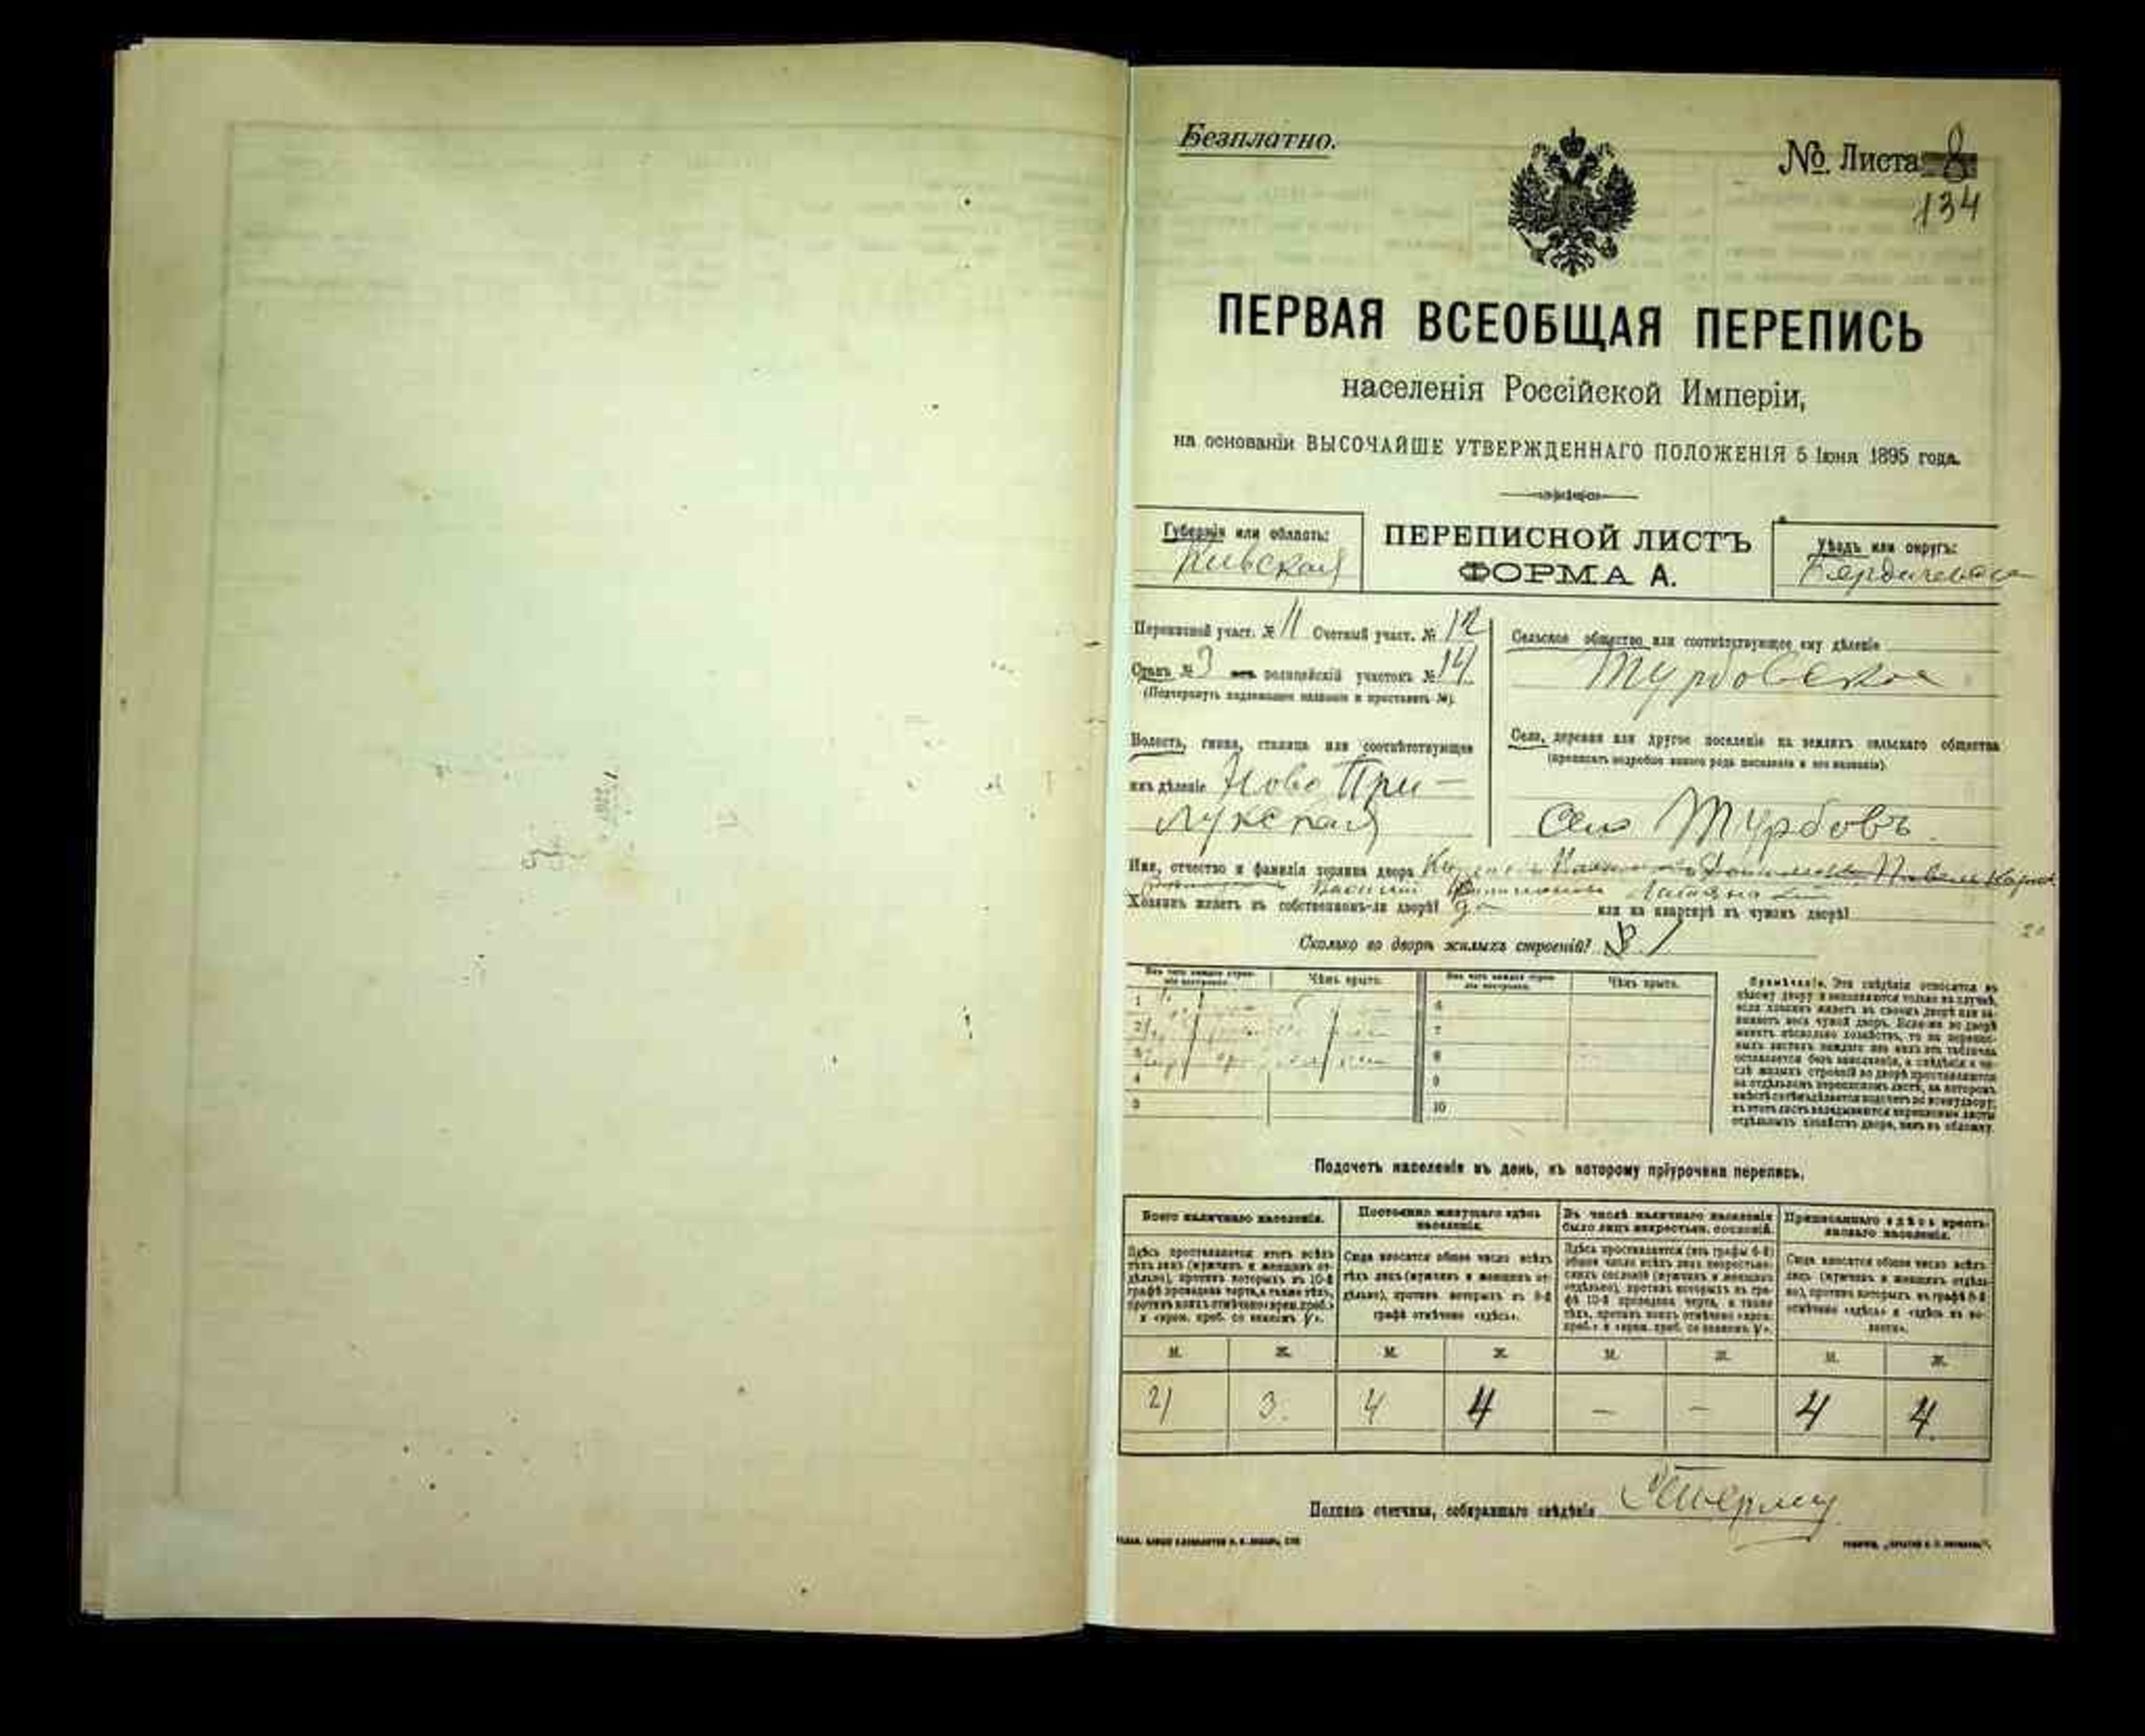 Безплатно.
№ Листа 8
134
ПЕРВАЯ ВСЕОБЩАЯ ПЕРЕПИСЬ
населенія Россійской Имперіи,
на основаніи ВЫСОЧАЙШЕ УТВЕРЖДЕННАГО ПОЛОЖЕНІЯ 5 Іюня 1895 года.
Губернія или область:
Кіевская
ПЕРЕПИСНОЙ ЛИСТЪ
ФОРМА А.
Уѣздъ или округъ:
Бердичевскій
Переписной участ. № 11 Счетный участ. № 12
Станъ № 3 или полицейскій участокъ № 14
(Подчеркнуть надлежащее названіе и проставить №).
Волость, гмина, станица или соотвѣтствующее
имъ дѣленіе Ново При-
лукская
Сельское общество или соотвѣтствующее ему дѣленіе
Турбовское
Село, деревня или другое поселеніе на земляхъ сельскаго общества
(прописать подробно какого рода поселеніе и его названіе).
Село Турбовъ
Имя, отчество и фамилія хозяина двора
Василий
Хозяинъ живетъ въ собственномъ-ли дворѣ? да или на квартирѣ въ чужомъ дворѣ?
Сколько во дворѣ жилыхъ строеній? 1
Изъ чего каждое строеніе построено.
Чѣмъ крыто.
Изъ чего каждое строеніе построено.
Чѣмъ крыто.
1
2
3
4
5
6
7
8
9
10
Примѣчаніе. Эти свѣдѣнія относятся къ
цѣлому двору и заполняются только въ случаѣ,
если хозяинъ живетъ въ своемъ дворѣ или за-
нимаетъ весь чужой дворъ. Если-же во дворѣ
живетъ нѣсколько хозяйствъ, то на перепис-
ныхъ листахъ каждаго изъ нихъ эта табличка
оставляется безъ заполненія, а свѣдѣнія о чи-
слѣ жилыхъ строеній во дворѣ проставляются
на отдѣльномъ переписномъ листѣ, на которомъ
вмѣстѣ съ тѣмъ дѣлается подсчетъ по всему двору;
въ этотъ листъ вкладываются переписные листы
отдѣльныхъ хозяйствъ двора, какъ въ обложку.
Подсчетъ населенія въ день, къ которому пріурочена перепись.
Всего наличнаго населенія.
Постоянно живущаго здѣсь населенія.
Въ числѣ наличнаго населенія было лицъ некрестьян. сословій.
Приписаннаго здѣсь крестьянскаго населенія.
Здѣсь проставляется итогъ всѣхъ
тѣхъ лицъ (мужчинъ и женщинъ от-
дѣльно), противъ которыхъ въ 10-й
графѣ проведена черта, а также тѣхъ,
противъ коихъ отмѣчено «врем. проб.»
и «врем. проб. со знакомъ V».
Сюда вносится общее число всѣхъ
тѣхъ лицъ (мужчинъ и женщинъ от-
дѣльно), противъ которыхъ въ 9-й
графѣ отмѣчено «здѣсь».
Здѣсь проставляется (изъ графы 6-й)
общее число всѣхъ лицъ некрестьян-
скихъ сословій (мужчинъ и женщинъ
отдѣльно), противъ которыхъ въ гра-
фѣ 10-й проведена черта, а также
тѣхъ, противъ коихъ отмѣчено «врем.
проб.» и «врем. проб. со знакомъ V».
Сюда вносится общее число всѣхъ
лицъ (мужчинъ и женщинъ отдѣль-
но), противъ которыхъ въ графѣ 8-й
отмѣчено «здѣсь» и «здѣсь въ во-
лости».
М. Ж. М. Ж. М. Ж. М. Ж.
2 3 4 4 — — 4 4
Подпись счетчика, собиравшаго свѣдѣнія